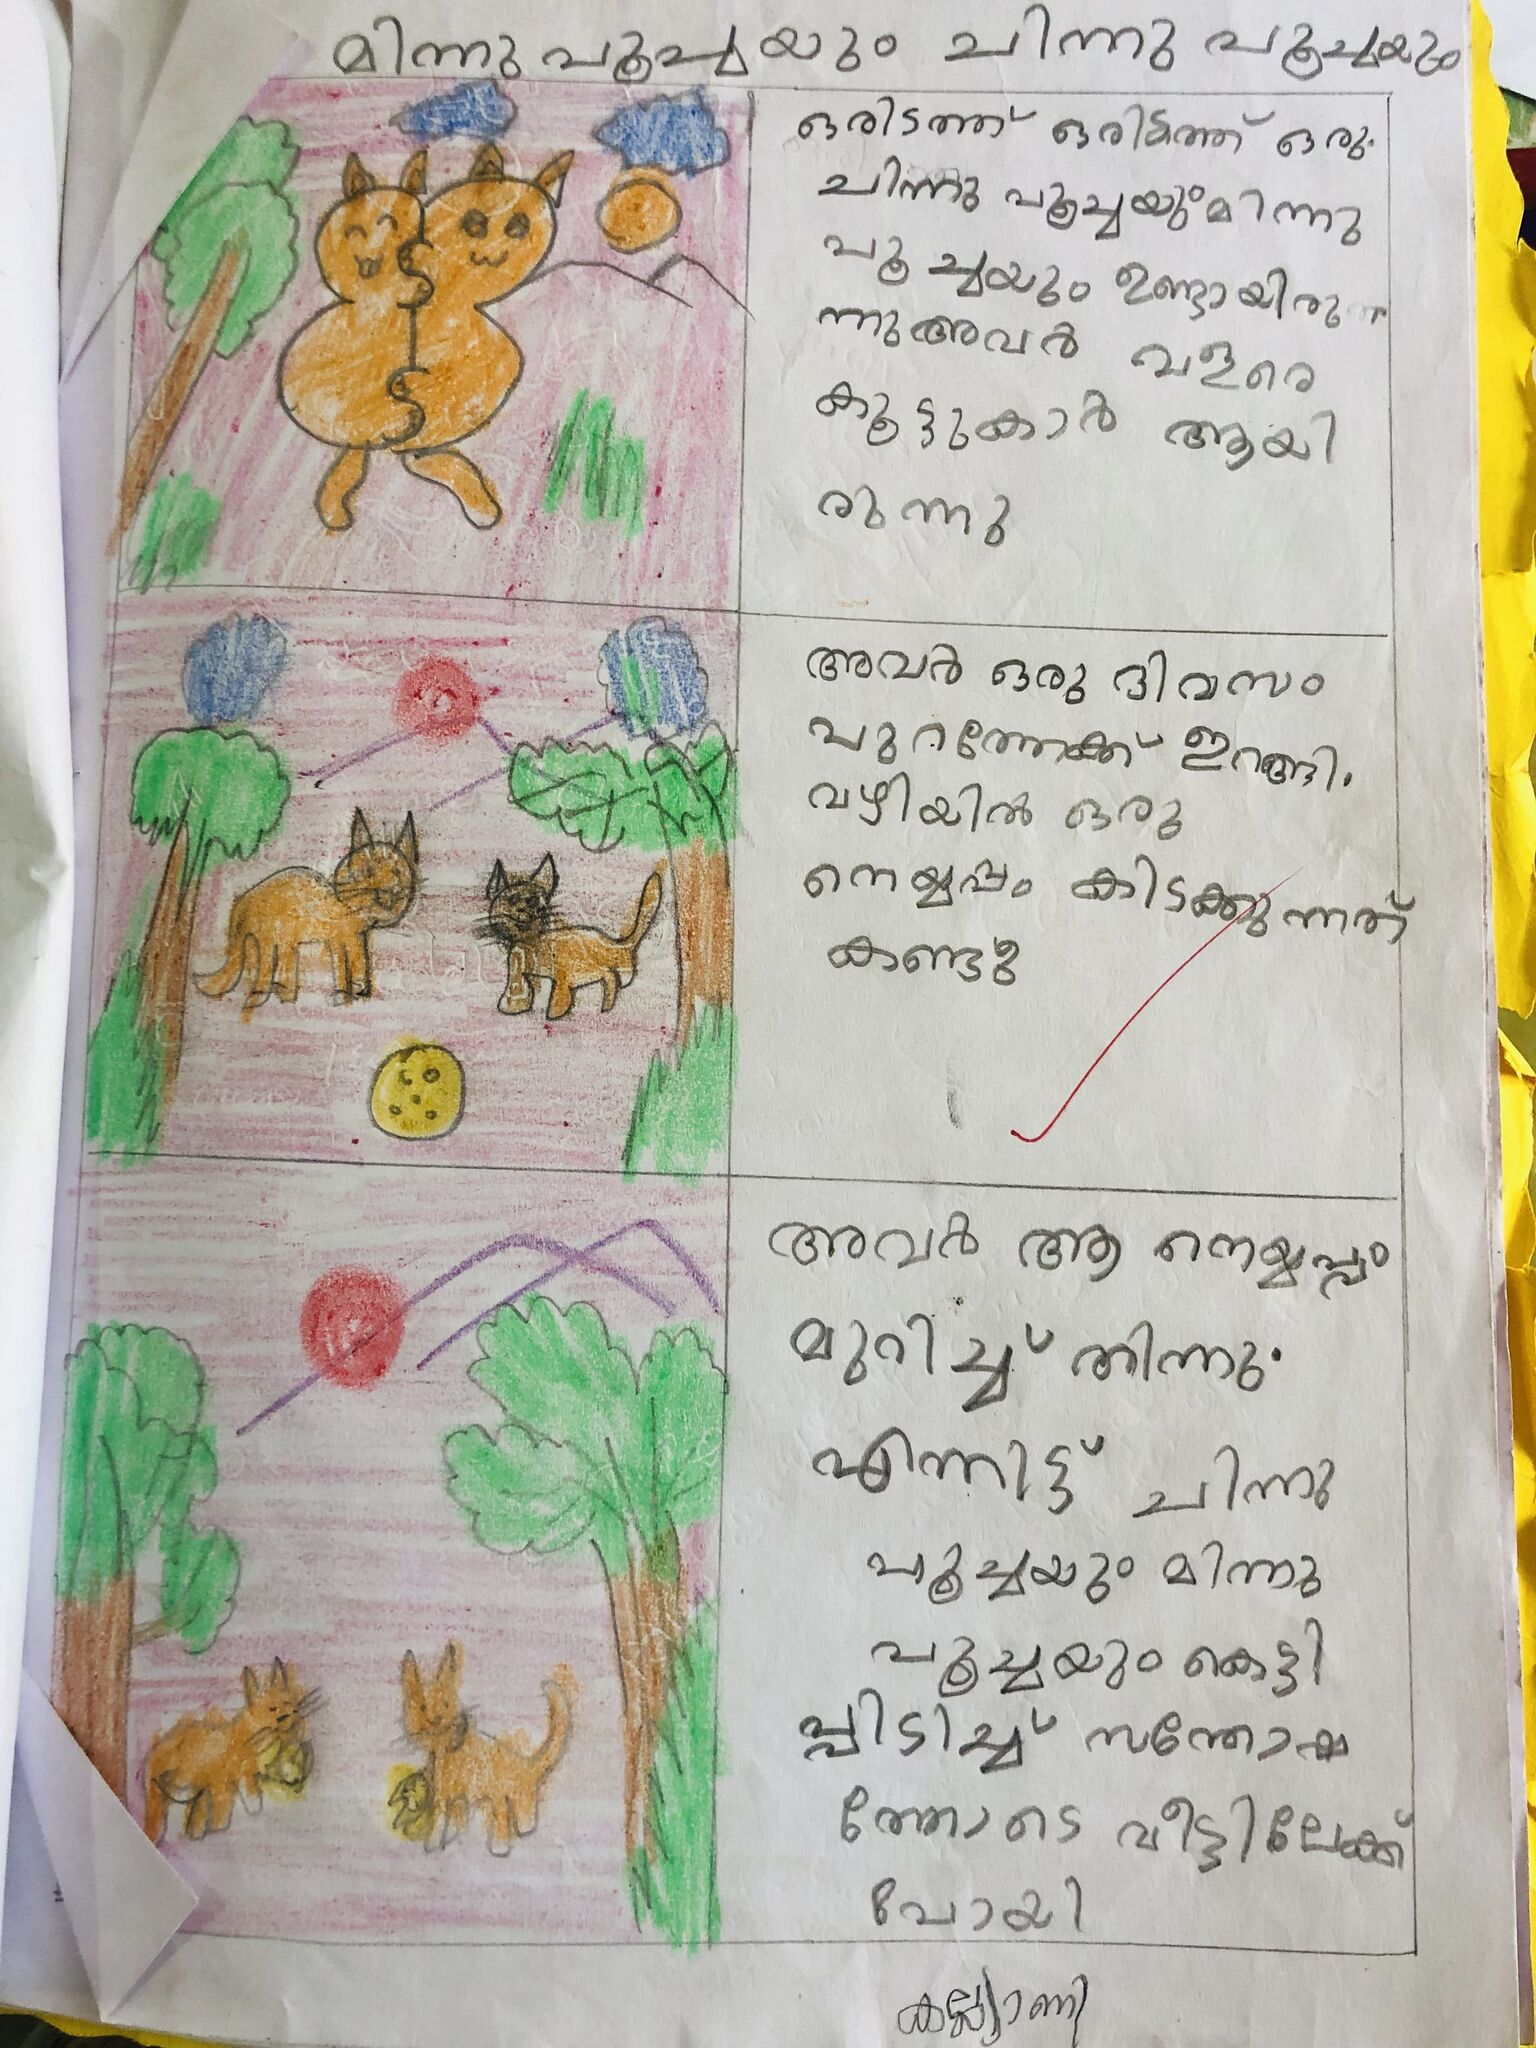 മിന്നു പൂച്ചയും ചിന്നു പൂച്ചയും
ഒരിടത്ത് ഒരിടത്ത് ഒരു
ചിന്നു പൂച്ചയും മിന്നു
പൂച്ചയും ഉണ്ടായിരു
ന്നു അവർ വളരെ
കൂട്ടുകാർ ആയി
രുന്നു
അവർ ഒരു ദിവസം
പുറത്തേക്ക് ഇറങ്ങി.
വഴിയിൽ ഒരു
നെയ്യപ്പം കിടക്കുന്നത്
കണ്ടു
അവർ ആ നെയ്യപ്പം
മുറിച്ച് തിന്നു.
എന്നിട്ട് ചിന്നു
പൂച്ചയും മിന്നു
പൂച്ചയും കെട്ടി
പ്പിടിച്ച് സന്തോഷ
ത്തോടെ വീട്ടിലേക്ക്
പോയി
കല്ല്യാണി